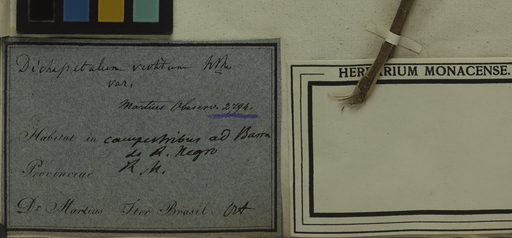 Dichapetalum
var.
Martius Observ. 2794.
Habitat in campestribus ad Barra
do R. Negro
Provinciae R. N.
Dr. Martius Iter Brasil. Oct
HERBARIUM MONACENSE.